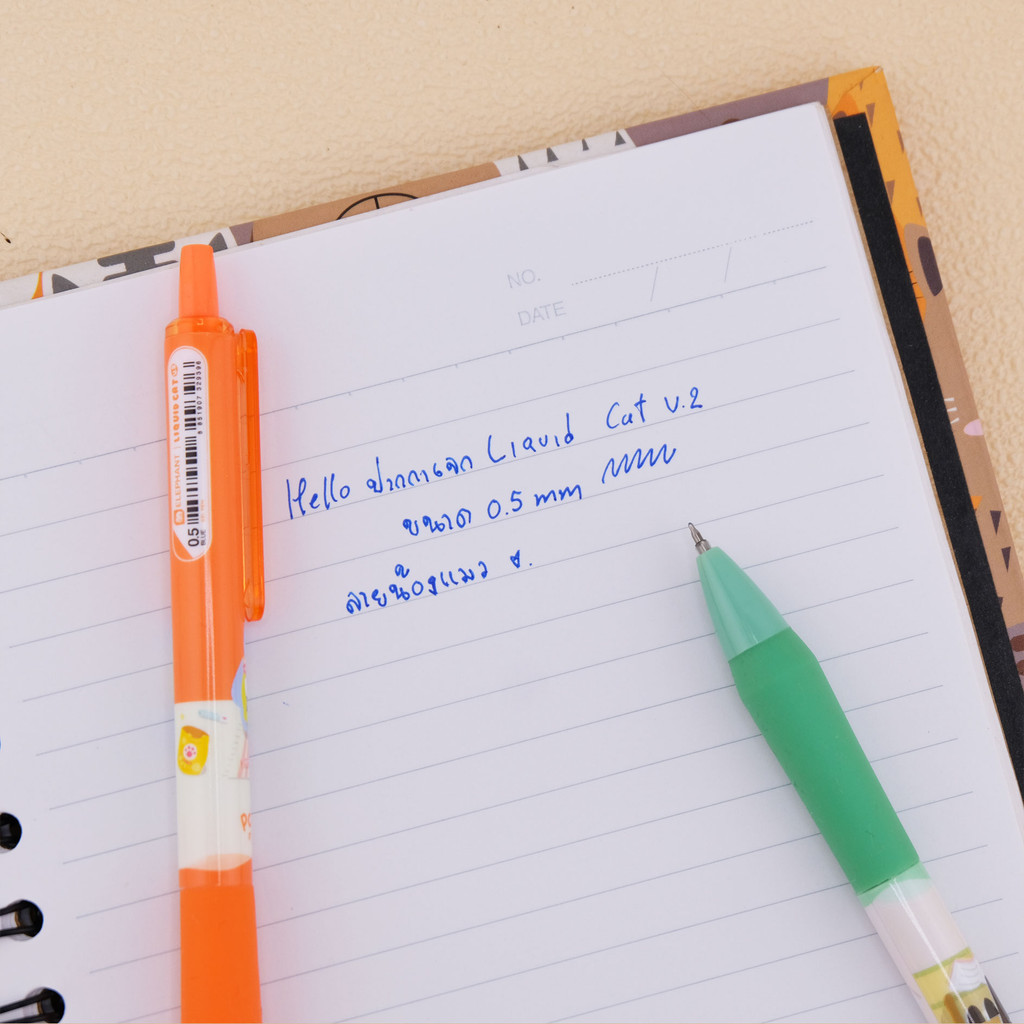 NO.
DATE
Hello ปากกาเจล Liquid Cat v.2
ขนาด 0.5 mm
ลายน้องแมว
ELEPHANT | LIQUID CAT
0.5
BLUE
8 851907 329398